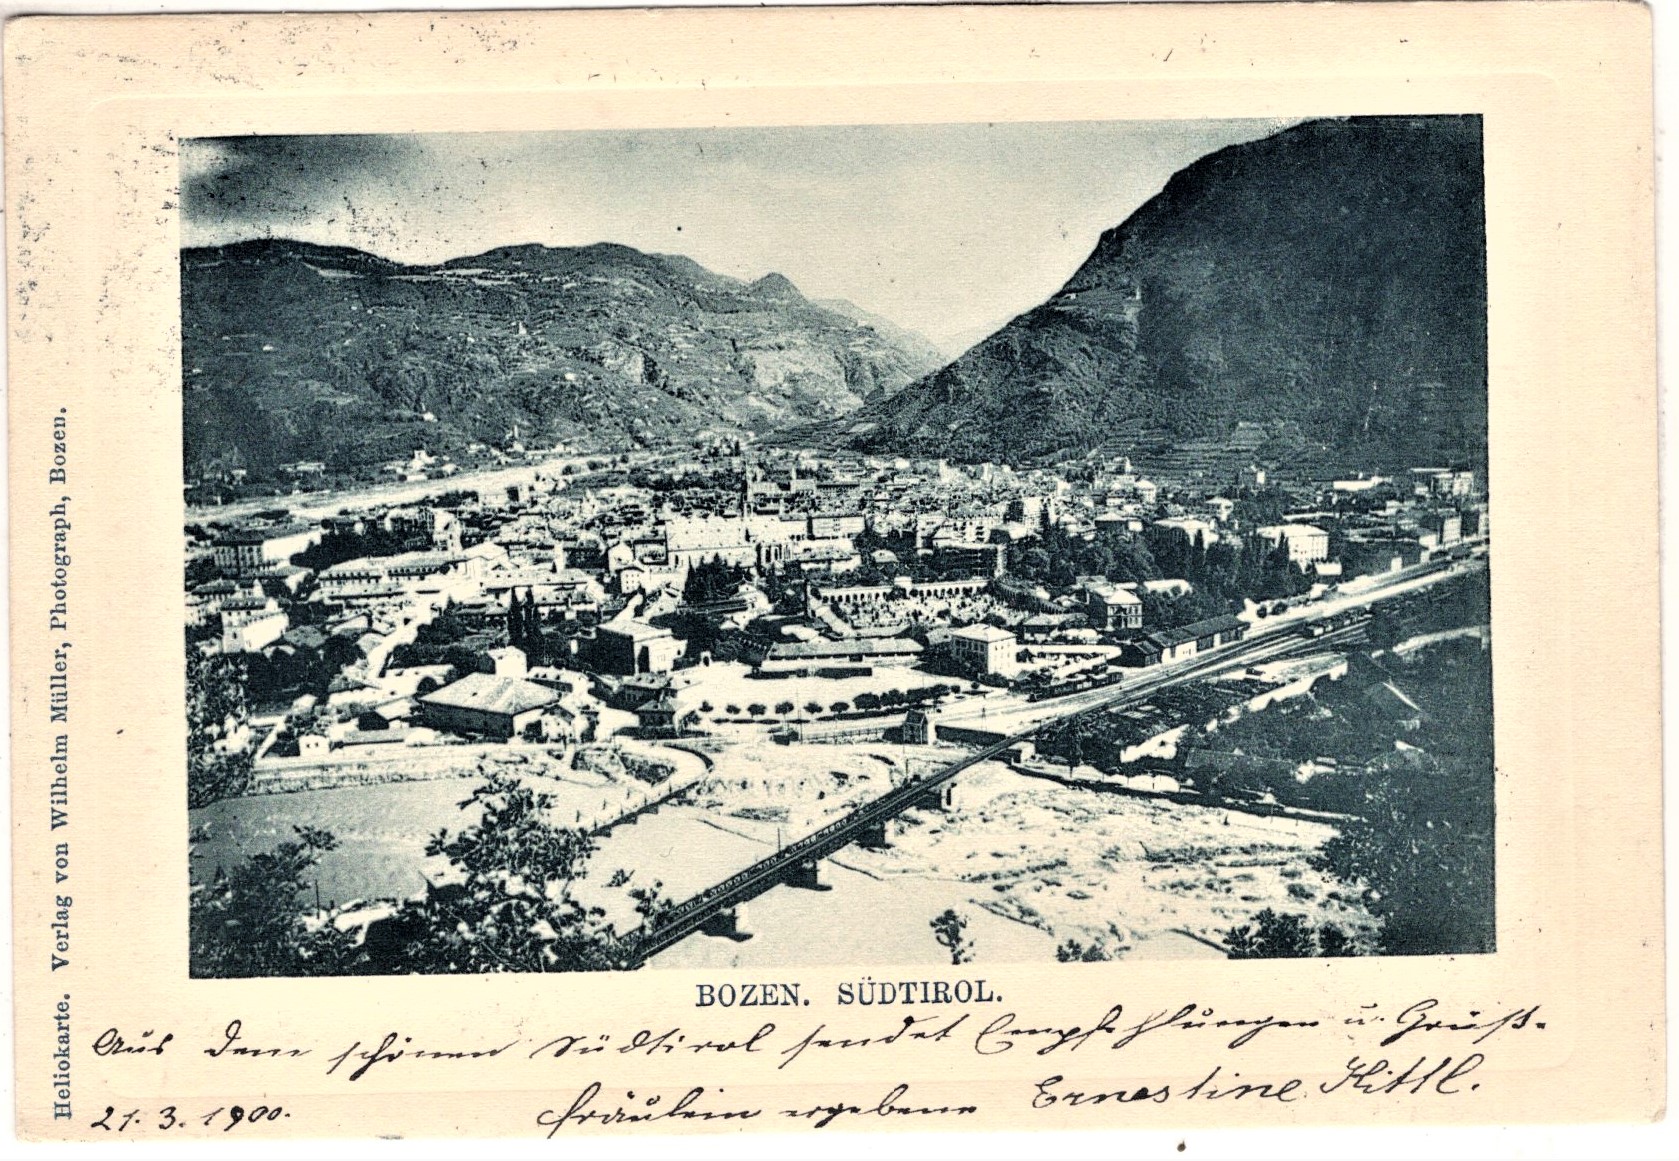 Heliokarte. Verlag von Wilhelm Müller, Photograph, Bozen.
BOZEN. SÜDTIROL.
Aus dem schönen Südtirol sendet Empfehlungen u. Grüße
21. 3. 1900. Fräulein ergebene Ernestine